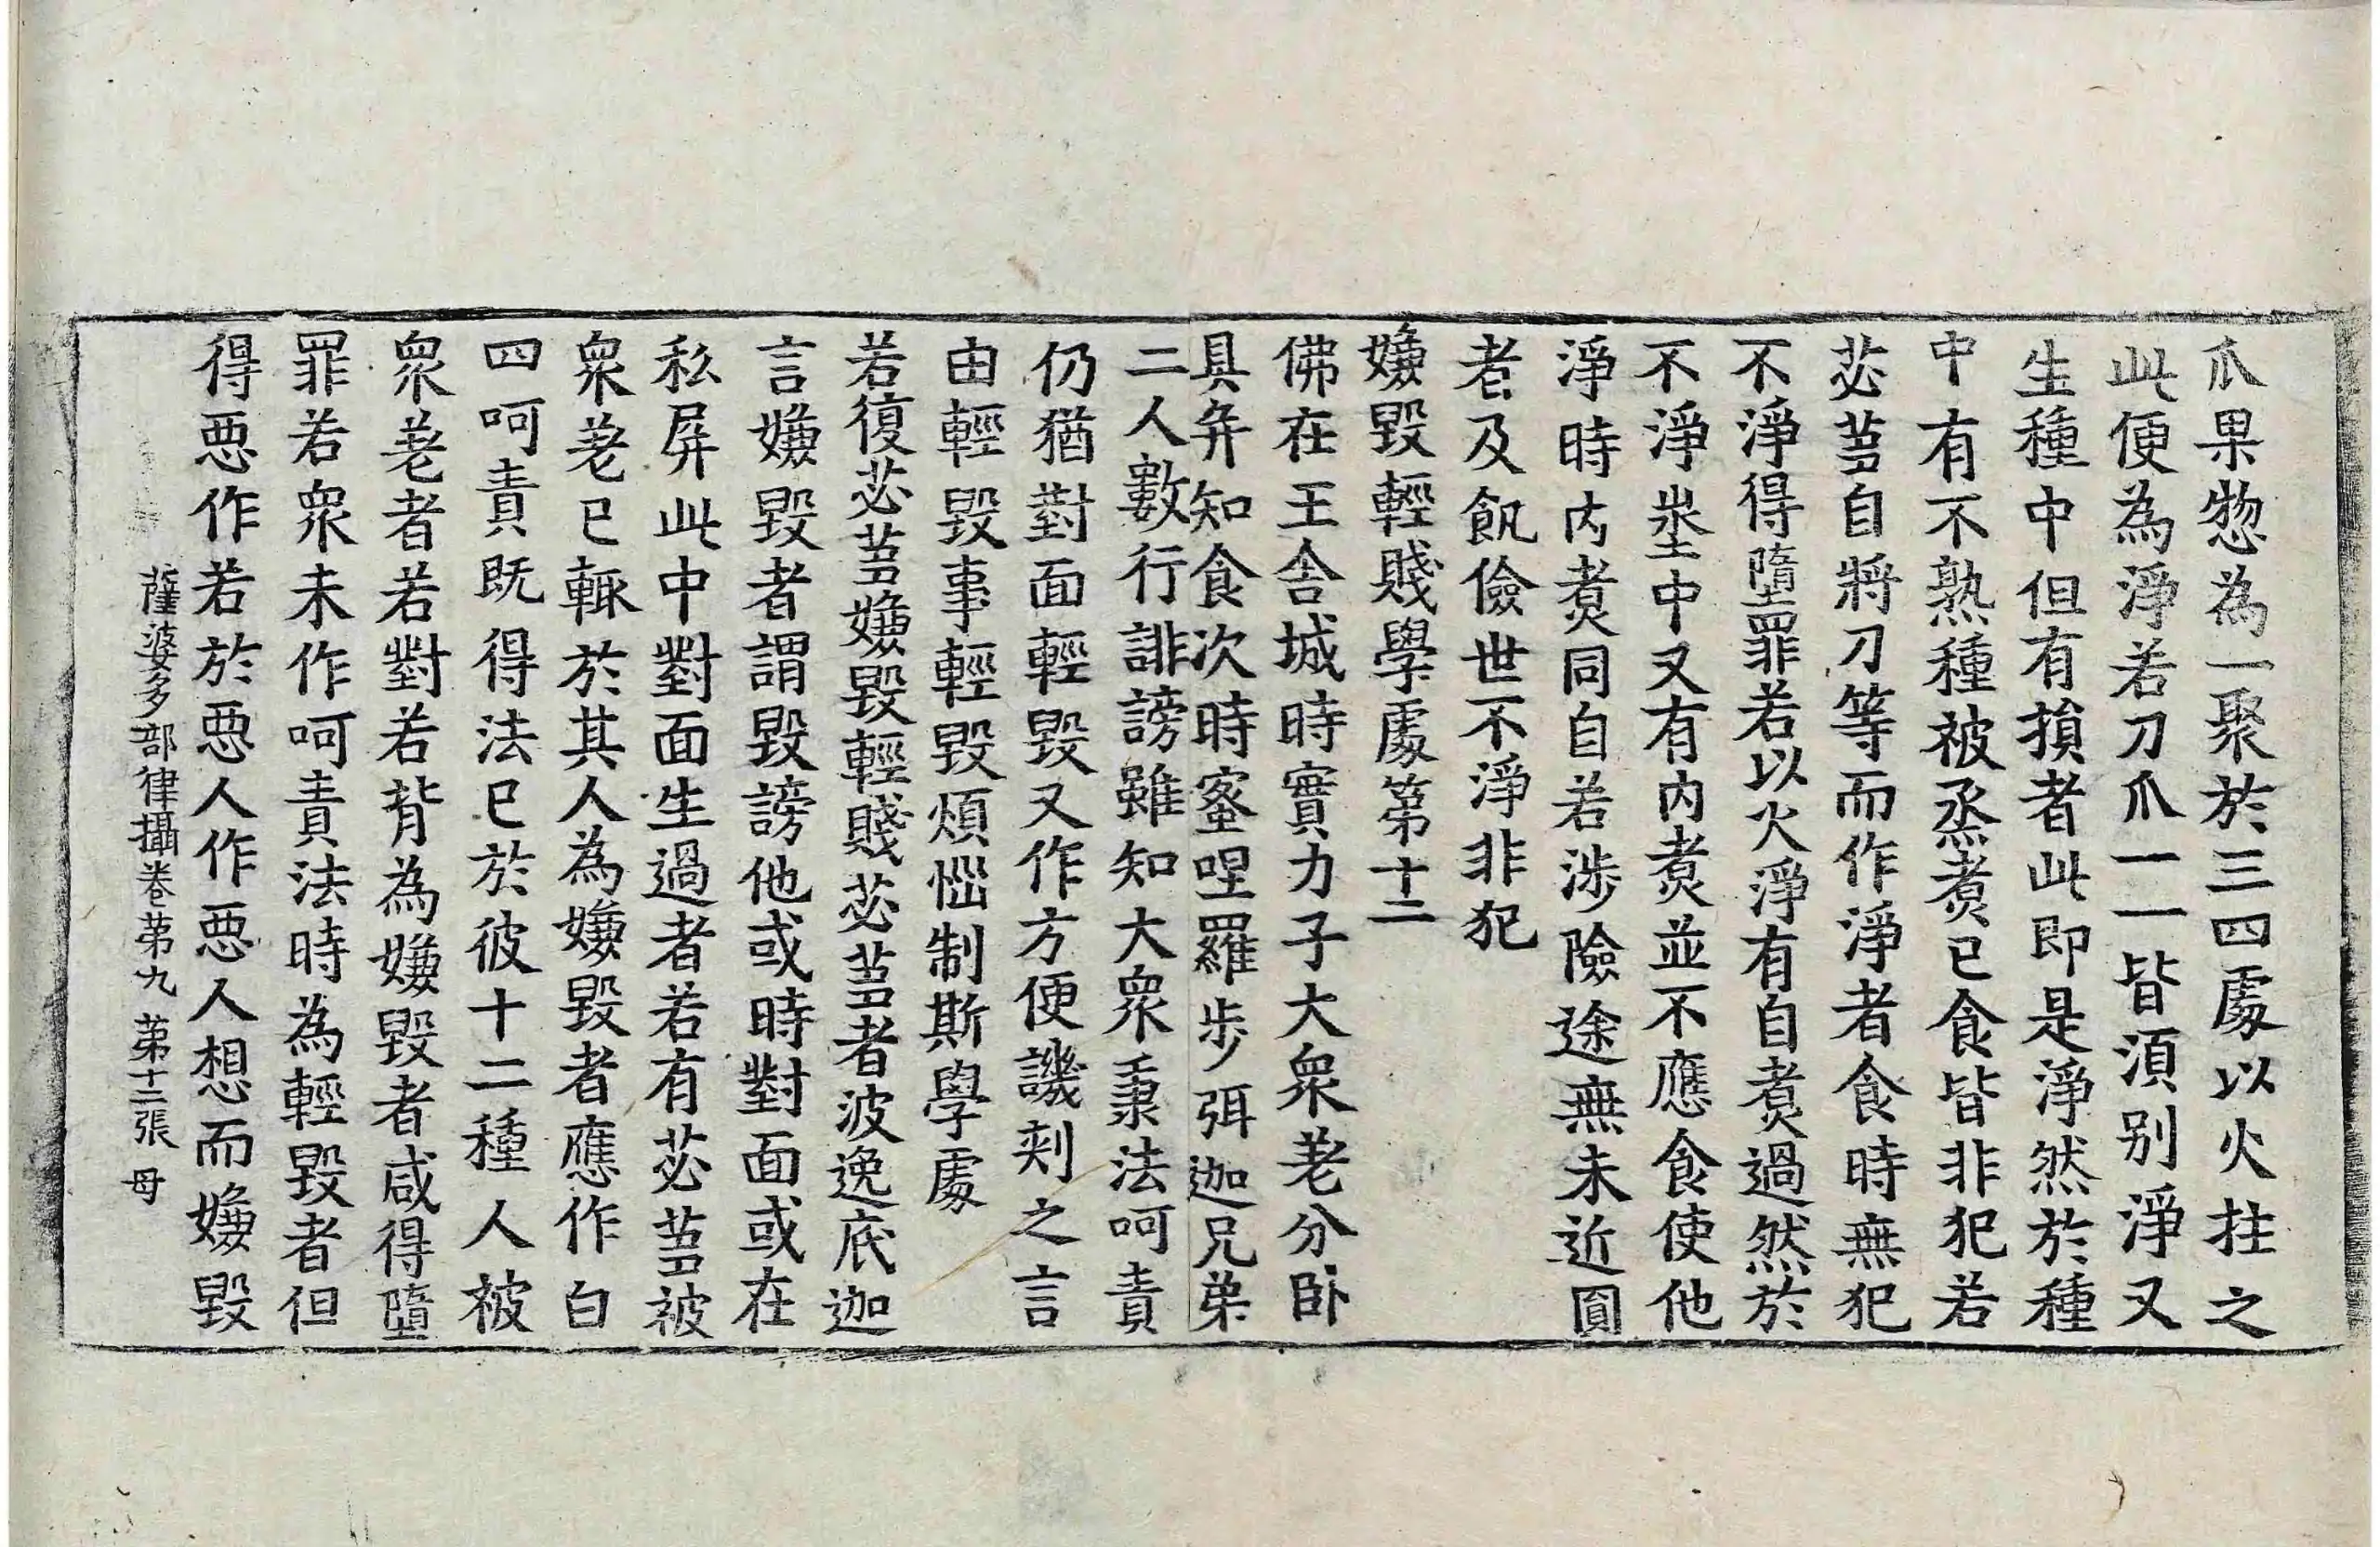 瓜果惣為一聚於三四處以火拄之
此便為淨若刀爪一一皆湏別淨又
生種中但有損者此即是淨然於種
中有不熟種被烝煮已食皆非犯若
苾芻自將刀等而作淨者食時無犯
不淨得墮罪若以火淨有自煮過然於
不淨坐中又有內煮並不應食使他
淨時內煮同自若涉險途無未近圓
者及飢儉世不淨非犯
嫌毀輕賤學處第十二
佛在王舍城時實力子大衆差分卧
具并知食次時蜜呾羅步弭迦兄弟
二人數行誹謗雖知大衆秉法呵責
仍猶對面輕毀又作方便譏刾之言
由輕毀事輕毀煩惱制斯學處
若復苾芻嫌毀輕賤苾芻者波逸底迦
言嫌毀者謂毀謗他或時對面或在
私屏此中對面生過者若有苾芻被
衆差已輙於其人為嫌毀者應作白
四呵責既得法已於彼十二種人被
衆差者若對若背為嫌毀者咸得墮
罪若衆未作呵責法時為輕毀者但
得惡作若於惡人作惡人想而嫌毀
薩婆多部律攝卷第九 第十二張 母